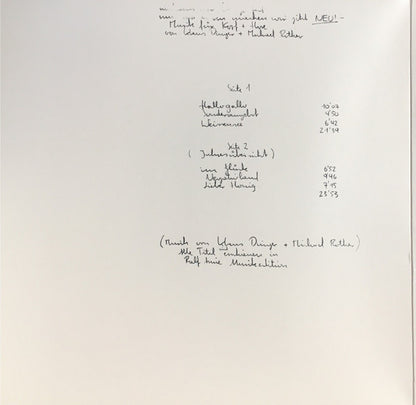 wir jetzt NEU! -
Musik für Kopf + Herz
von Klaus Dinger + Michael Rother
Seite 1
Hallogallo 10'07
Sonderangebot 4'50
Weissensee 6'42
21'39
Seite 2
(Jahresübersicht)
im Glücke 6'52
Negativland 9'46
Lieber Honig 7'15
23'53
(Musik von Klaus Dinger + Michael Rother)
Alle Titel erschienen in
Ralf Musikedition